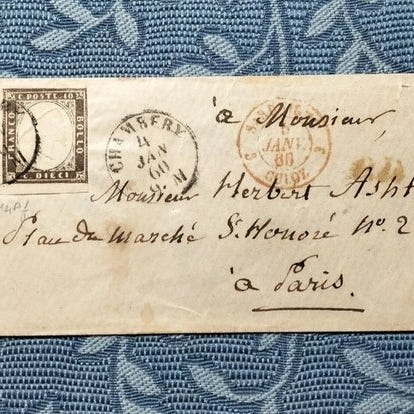 C. POSTE 10
FRANCO
BOLLO
C. DIECI
CHAMBERY
4
JAN
60
S. M
JANV.
60
CULOZ
3
3
à Monsieur
Monsieur Herbert Asht
Place du Marché St. Honoré No. 2
à Paris.